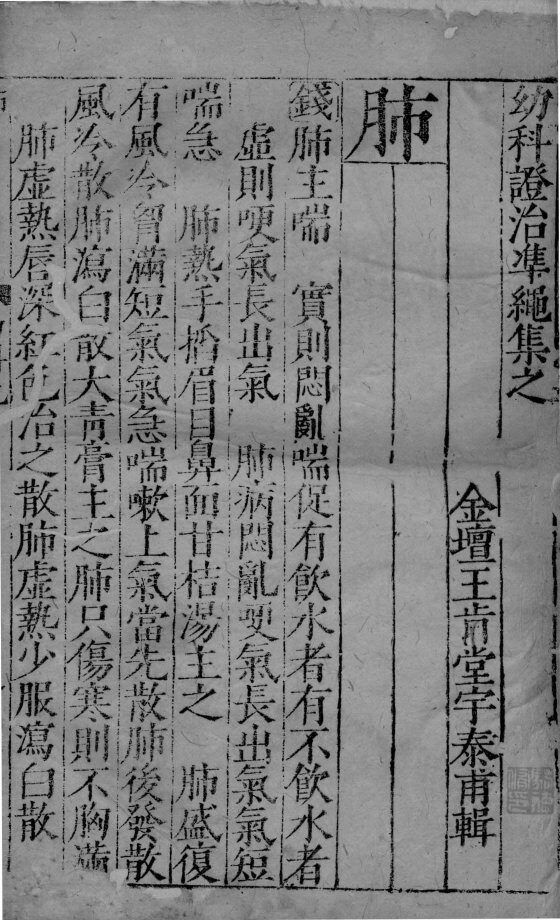 幼科證治準繩集之
金壇王肯堂宇泰甫輯
肺
錢肺主喘 實則悶亂喘促有飲水者有不飲水者
虛則哽氣長出氣 肺病悶亂哽氣長出氣氣短
喘急 肺熱手掐眉目鼻面甘桔湯主之 肺盛復
有風冷胷滿短氣氣急喘嗽上氣當先散肺後發散
風冷散肺瀉白散大青膏主之肺只傷寒則不胸滿
肺虛熱唇深紅色治之散肺虛熱少服瀉白散